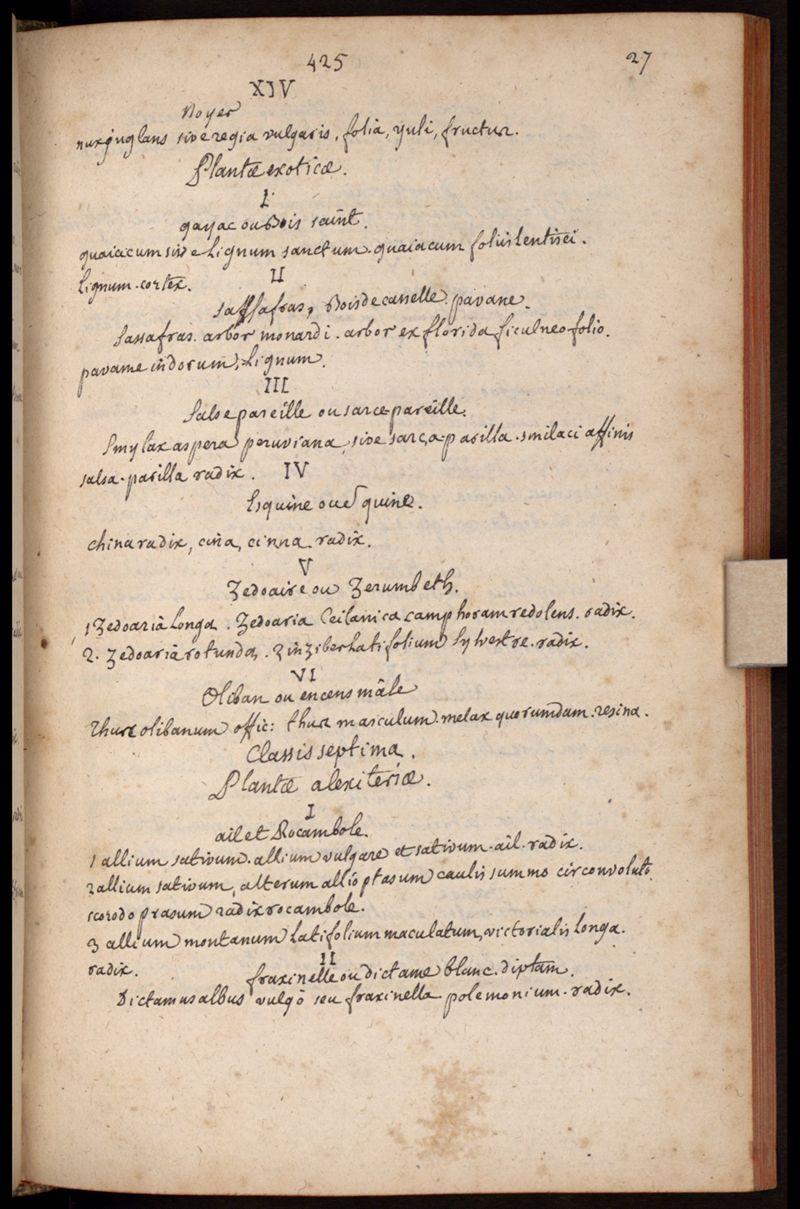 425 27
XIV
Noyer
nux juglans sive regia vulgaris, folia, juli, fructus.
Plantæ exoticæ.
I
gayac ou Bois saint.
guaiacum sive Lignum sanctum. guaiacum foliis lentisci.
Lignum. cortex.
II
saffafras, Bois de cannelle. pavane.
Sassafras. arbor monardi. arbor ex florida ficulneo folio.
pavame indorum, Lignum.
III
Salsepareille ou sarce-pareille.
Smylax aspera peruviana, sive sarça-parilla. smilaci affinis
salsa-parilla radix.
IV
Esquine ou quine.
china radix, cina, cinna. radix.
V
Zedoaire ou Zerumbeth.
1 Zedoaria Longa. Zedoaria Ceilanica camphoram redolens. radix.
2. Zedoaria rotunda. Zinziber Latifolium sylvestre. radix.
VI
Oliban ou encens mâle
thus olibanum offic: thus masculum. melax quorumdam. resina.
Classis septima.
Plantæ alexiteriæ.
I
ail et Rocambole.
1 allium sativum. allium vulgare et sativum. ail. radix.
2 allium sativum, alterum allioprasum caulis summo circonvoluto.
scorodoprasum radix rocambole.
3 allium montanum Latifolium maculatum, victorialis Longa.
radix.
II
fraxinelle ou dictame blanc. diptam.
Dictamus albus vulgò seu fraxinella polemonium. radix.